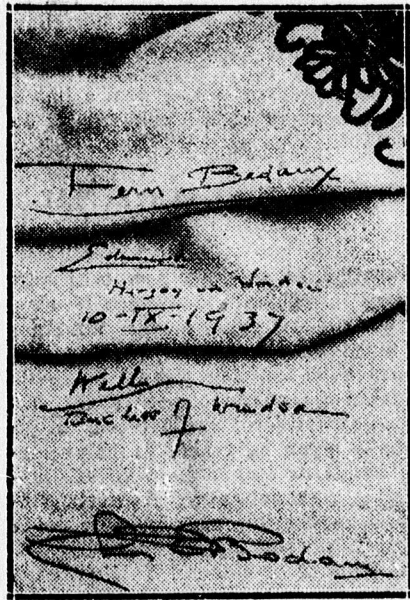 Fern Bedaux
Edward
Herzog von Windsor
10-IX-1937
Wallis
Duchess of Windsor
Bedaux